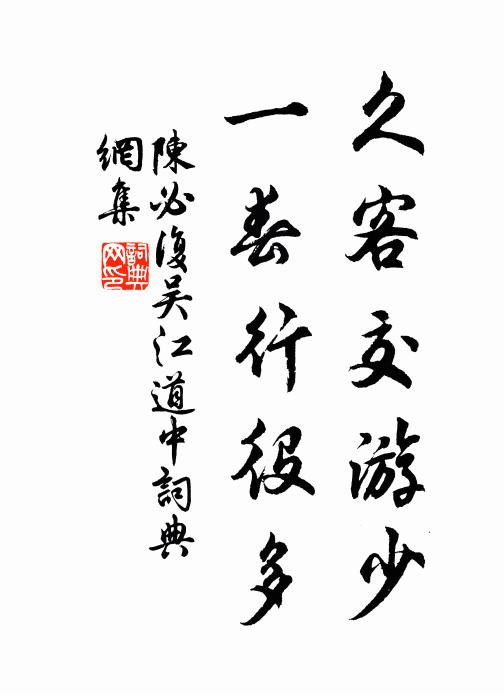 久客交游少
一春行役多
陳必復吳江道中詞典
網集
詞典網印